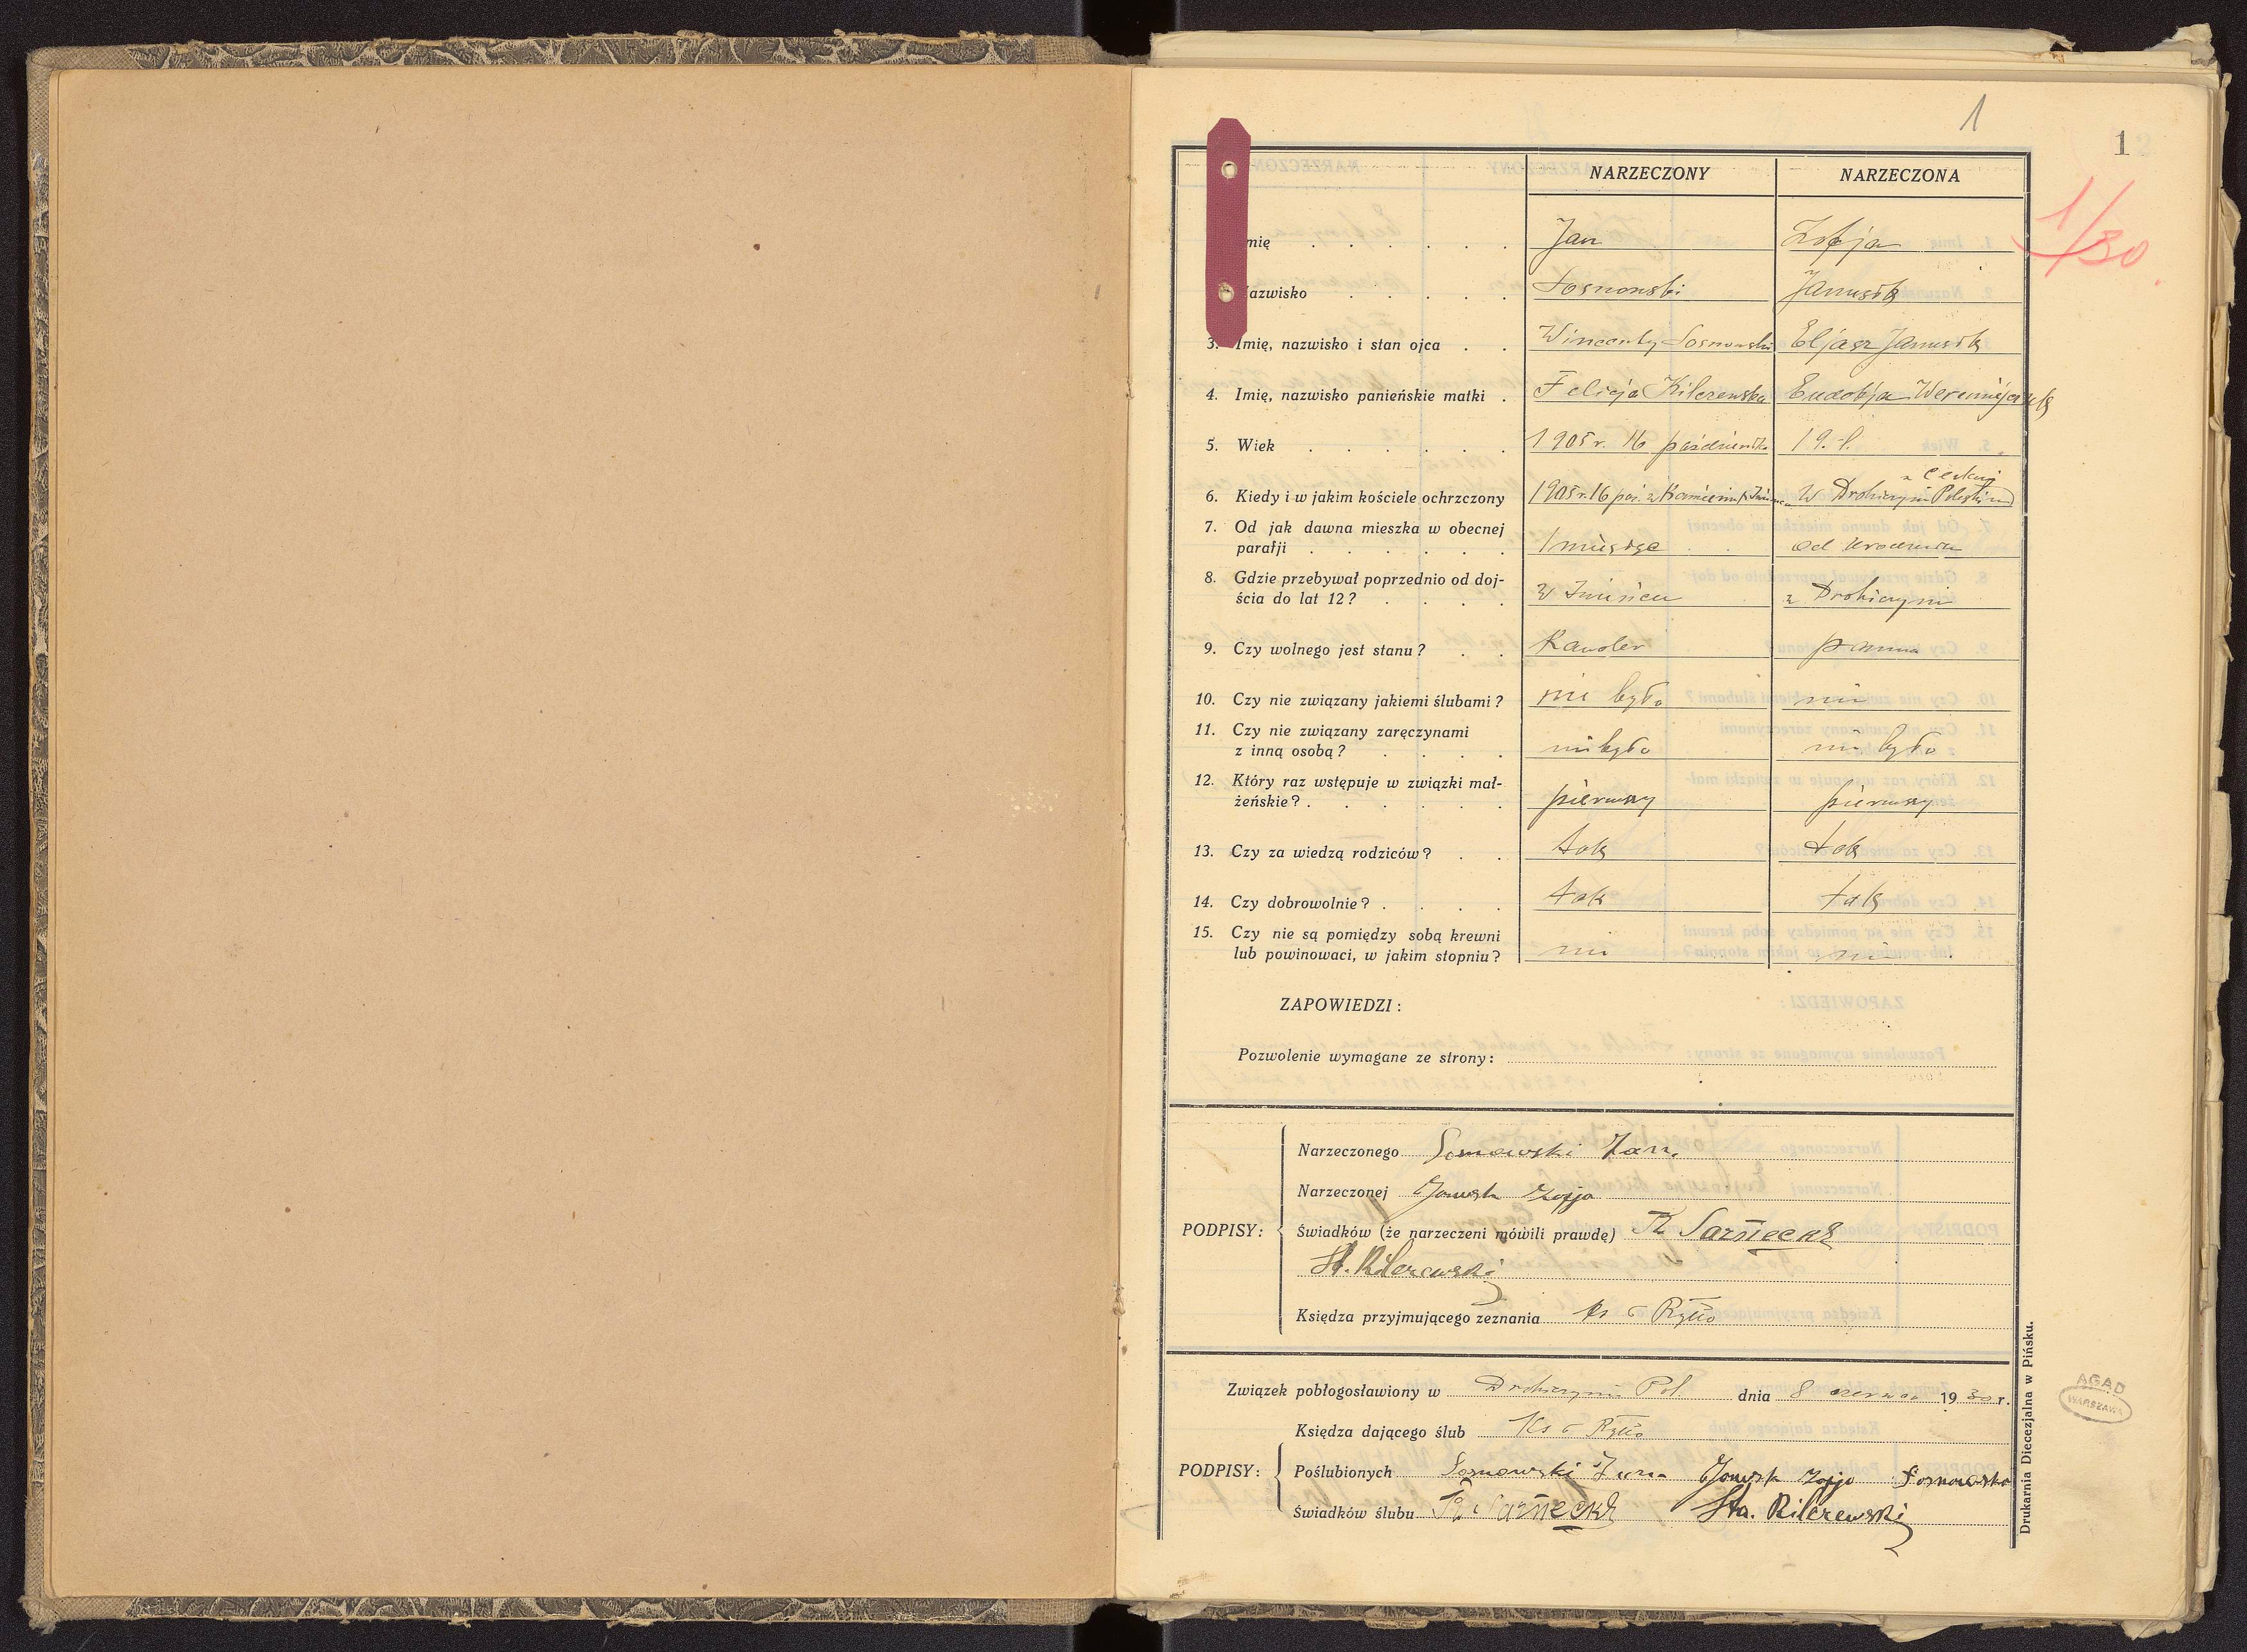 1
12
1/30
NARZECZONY NARZECZONA
mię Jan Zofja
azwisko Sosnowski Janusik
3. Imię, nazwisko i stan ojca Wincenty Sosnowski Eljasz Janusik
4. Imię, nazwisko panieńskie matki Felicja Kilczewska Eudokja
5. Wiek 1905 r. 16 październik 19 l.
6. Kiedy i w jakim kościele ochrzczony 1905 r. 16 paź. w w cerkwi w Drohiczynie Poleskim
7. Od jak dawna mieszka w obecnej
parafji 1 miesiąc od urodzenia
8. Gdzie przebywał poprzednio od doj-
ścia do lat 12? w w Drohiczynie
9. Czy wolnego jest stanu? Kawaler panna
10. Czy nie związany jakiemi ślubami? nie było nie
11. Czy nie związany zaręczynami
z inną osobą? nie było nie było
12. Który raz wstępuje w związki mał-
żeńskie? pierwszy pierwszy
13. Czy za wiedzą rodziców? tak tak
14. Czy dobrowolnie? tak tak
15. Czy nie są pomiędzy sobą krewni
lub powinowaci, w jakim stopniu? nie nie
ZAPOWIEDZI:
Pozwolenie wymagane ze strony:
Narzeczonego Sosnowski Jan.
Narzeczonej Janusik Zofja
PODPISY: Świadków (że narzeczeni mówili prawdę) Sarnecki
St. Kilczewski
Księdza przyjmującego zeznania Ks
Związek pobłogosławiony w Drohiczynie Pol. dnia 8 czerwca 1930 r.
Księdza dającego ślub Ks
PODPISY: Poślubionych Sosnowski Jan Janusik Zofja Sosnowska
Świadków ślubu Sarnecki Sta. Kilczewski
Drukarnia Diecezjalna w Pińsku.
AGAD
WARSZAWA